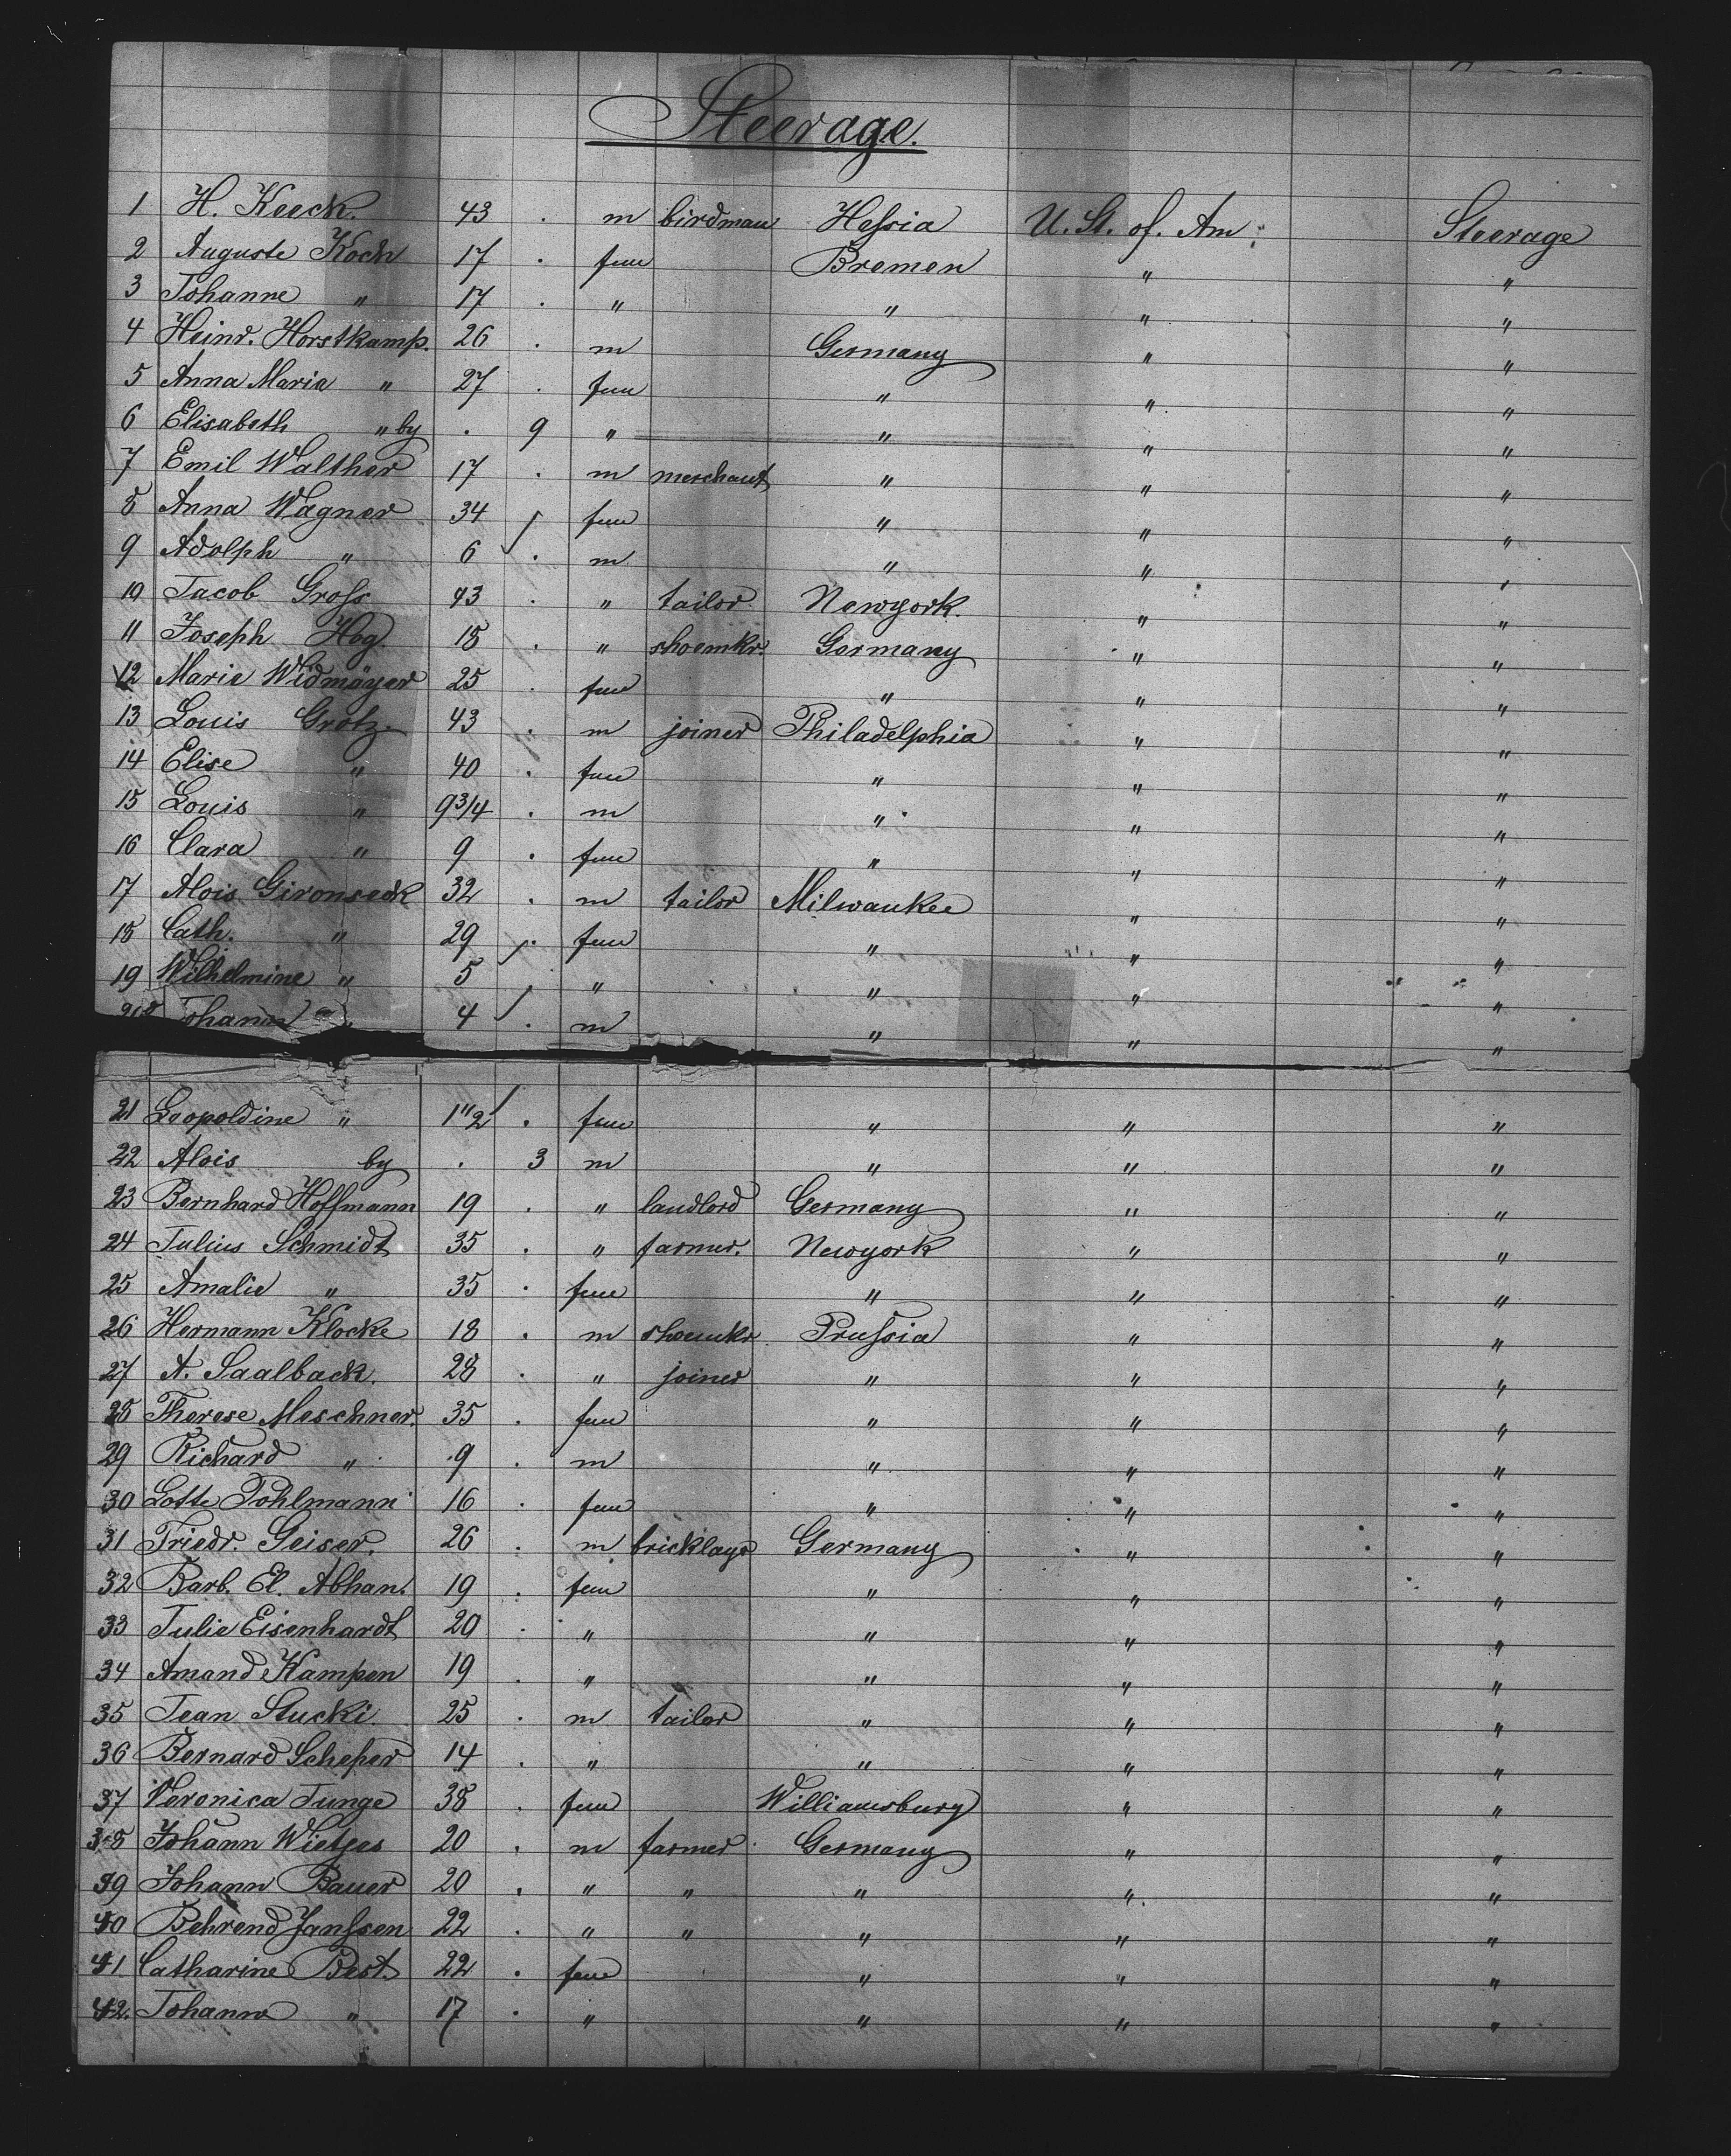 Steerage.
1 H. Keeck. 43 . m birdman Hessia U. St. of. Am. Steerage
2 Auguste Koch 17 . fem Bremen " "
3 Johanne " 17 . " " " "
4 Heinr. Horstkamp. 26 . m Germany " "
5 Anna Maria " 27 . fem " " "
6 Elisabeth " by . 9 " " " "
7 Emil Walther 17 . m merchant " " "
8 Anna Wagner 34 fem " " "
9 Adolph " 6 . m " " "
10 Jacob Gross 43 . " tailor Newyork. " "
11 Joseph Hog. 18 . " shoemkr. Germany " "
12 Marie Widmayer 25 . fem " " "
13 Louis Grotz. 43 . m joiner Philadelphia " "
14 Elise " 40 . fem " " "
15 Louis " 9 3/4 . m " " "
16 Clara " 9 . fem " " "
17 Alois Gironseck 32 . m tailor Milwaukee " "
18 Cath. " 29 . fem " " "
19 Wilhelmine " 5 . " " " "
20 Johann " 4 . m " " "
21 Leopoldine " 1"2 . fem " " "
22 Alois by . 3 m " " "
23 Bernhard Hoffmann 19 . " landlord Germany " "
24 Julius Schmidt 35 . " farmer. Newyork " "
25 Amalie " 35 . fem " " "
26 Hermann Klocke 18 . m shoemkr Prussia " "
27 A. Saalback. 28 . " joiner " " "
28 Therese Meschner. 35 . fem " " "
29 Richard " 9 . m " " "
30 Lotte Pohlmann 16 . fem " " "
31 Friedr. Geiser. 26 . m bricklayr Germany " "
32 Barb. El. Abhan. 19 . fem " " "
33 Julie Eisenhardt 20 . " " " "
34 Amande Kampen 19 . " " " "
35 Jean Stucki. 25 . m tailor " " "
36 Bernard Scheper 14 . " " " "
37 Veronica Junge 38 . fem Williamsburg " "
38 Johann Wietjes 20 . m farmer Germany " "
39 Johann Bauer 20 . " " " " "
40 Behrend Janssen 22 . " " " " "
41 Catharine Best. 22 . fem " " "
42. Johanne " 17 . " " " "